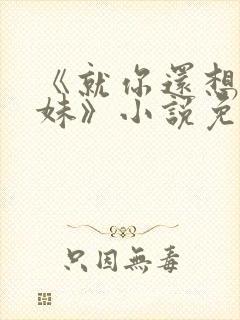 《就你還想
妹》小說免
只因無毒